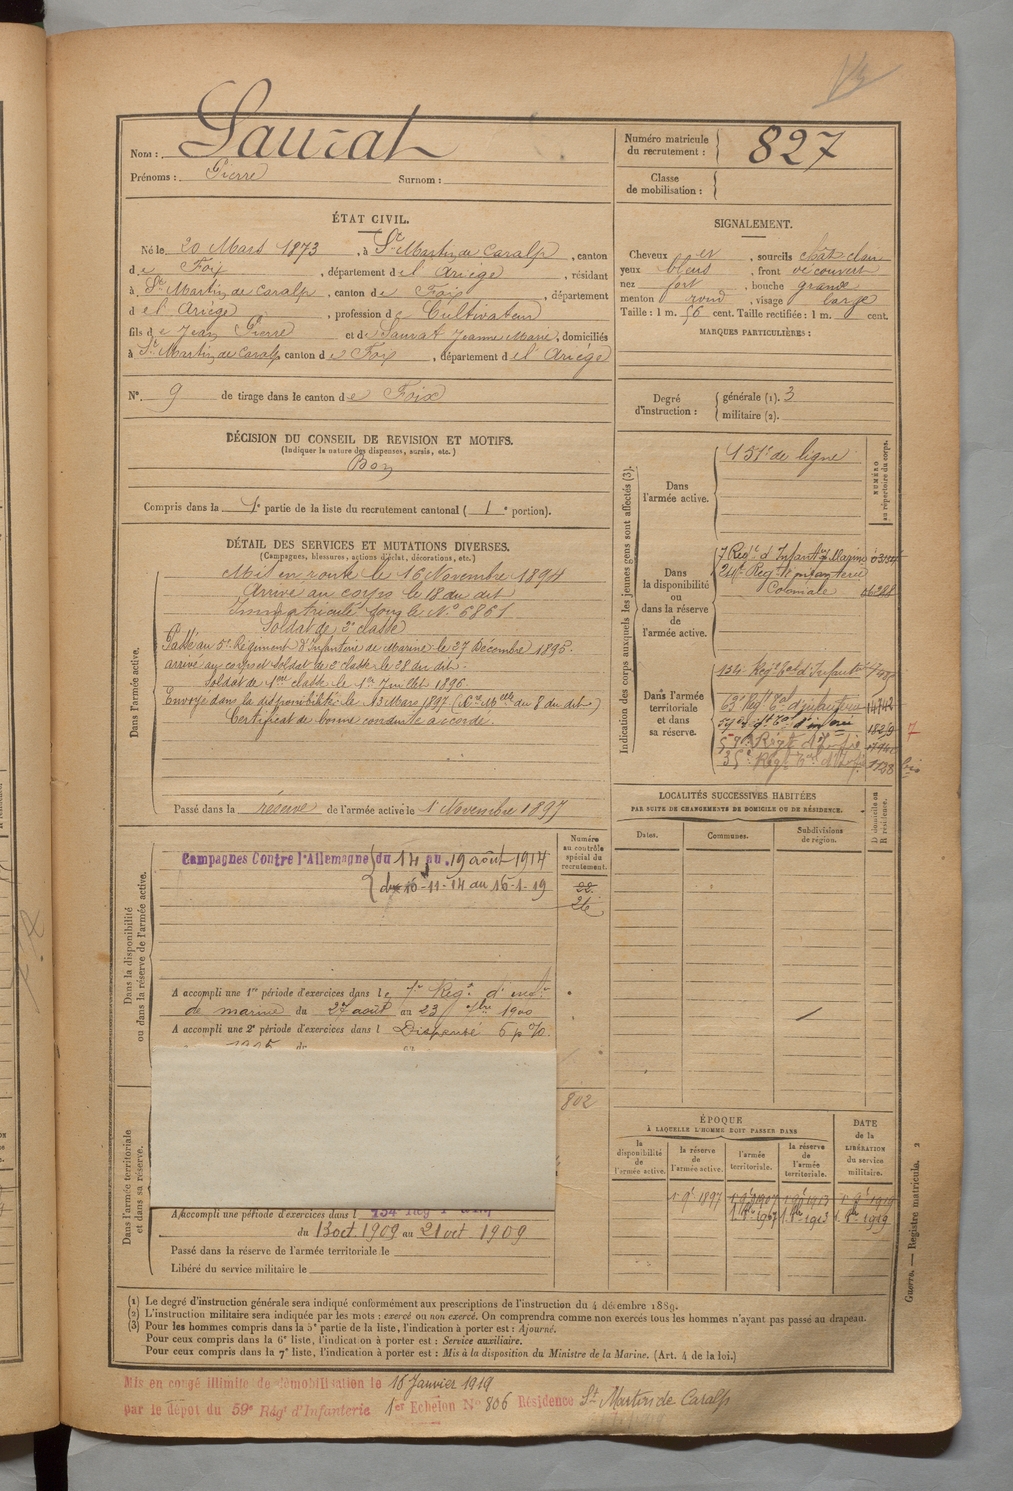 Nom : Saurat
Prénoms : Pierre Surnom :
Numéro matricule du recrutement : 827
Classe de mobilisation :
ÉTAT CIVIL.
Né le 20 Mars 1873, à St Martin de Caralp, canton
de Foix, département de l'Ariège, résidant
à St Martin de Caralp, canton de Foix, département
de l'Ariège, profession de Cultivateur
fils de Jean Pierre et de Saurat Jeanne Marie, domiciliés
à St Martin de Caralp canton de Foix, département de l'Ariège
N° 9 de tirage dans le canton de Foix
SIGNALEMENT.
Cheveux et, sourcils chât clair
yeux bleus, front découvert
nez fort, bouche grande
menton rond, visage large
Taille : 1 m. 56 cent. Taille rectifiée : 1 m. cent.
MARQUES PARTICULIÈRES :
Degré d'instruction : générale (1). 3
militaire (2).
DÉCISION DU CONSEIL DE REVISION ET MOTIFS.
(Indiquer la nature des dispenses, sursis, etc.)
Bon
Compris dans la 1e partie de la liste du recrutement cantonal (1e portion).
DÉTAIL DES SERVICES ET MUTATIONS DIVERSES.
(Campagnes, blessures, actions d'éclat, décorations, etc.)
Dans l'armée active.
Mis en route le 16 Novembre 1894
Arrivé au corps le 18 du dit
Immatriculé sous le N° 6861
Soldat de 2e classe
Passé au 5e Régiment d'Infanterie de Marine le 27 Décembre 1895.
arrivé au corps et soldat de 2e classe le 28 du dit.
Soldat de 1ere classe le 1er Juillet 1896
Envoyé dans la disponibilité le 13 Mars 1897 (Cre Mlle du 8 du dit)
Certificat de bonne conduite accordé.
Passé dans la réserve de l'armée active le 1 Novembre 1897
Indication des corps auxquels les jeunes gens sont affectés (3).
NUMÉRO au répertoire du corps.
Dans l'armée active.
131e de ligne
Dans la disponibilité ou dans la réserve de l'armée active.
7 Regt d'Infantry Marine
24e Reg d'infanterie
Coloniale
Dans l'armée territoriale et dans sa réserve.
134 Regt Tal d'Infant
63e Regt Tal d'infanterie 14742
59e Régt d'Infie
35e Régt Tal d'Infie
bis
LOCALITÉS SUCCESSIVES HABITÉES
PAR SUITE DE CHANGEMENTS DE DOMICILE OU DE RÉSIDENCE.
Dates. Communes. Subdivisions de région. D domicile ou R résidence.
Numéro au contrôle spécial du recrutement.
Dans la disponibilité ou dans la réserve de l'armée active.
Campagnes Contre l'Allemagne du 14 au 19 août 1914
du 16-11-14 au 16-1-19
22
26
A accompli une 1re période d'exercices dans le 7e Régt d'inf.
de marine du 27 août au 23 7bre 1900
A accompli une 2e période d'exercices dans l Dispensé 6 p %
1905
802
Dans l'armée territoriale et dans sa réserve.
A accompli une période d'exercices dans l 134 Reg T
du 13 oct 1909 au 21 oct 1909
Passé dans la réserve de l'armée territoriale le
Libéré du service militaire le
ÉPOQUE
À LAQUELLE L'HOMME DOIT PASSER DANS
la disponibilité de l'armée active.
la réserve de l'armée active.
l'armée territoriale.
la réserve de l'armée territoriale.
DATE de la LIBÉRATION du service militaire.
1 9e 1897
Guerre. — Registre matricule. 2
(1) Le degré d'instruction générale sera indiqué conformément aux prescriptions de l'instruction du 4 décembre 1889.
(2) L'instruction militaire sera indiquée par les mots : exercé ou non exercé. On comprendra comme non exercés tous les hommes n'ayant pas passé au drapeau.
(3) Pour les hommes compris dans la 5e partie de la liste, l'indication à porter est : Ajourné.
Pour ceux compris dans la 6e liste, l'indication à porter est : Service auxiliaire.
Pour ceux compris dans la 7e liste, l'indication à porter est : Mis à la disposition du Ministre de la Marine. (Art. 4 de la loi.)
Mis en congé illimité de démobilisation le 18 Janvier 1919
par le dépôt du 59e Régt d'Infanterie 1er Echelon N° 806 Résidence St Martin de Caralp